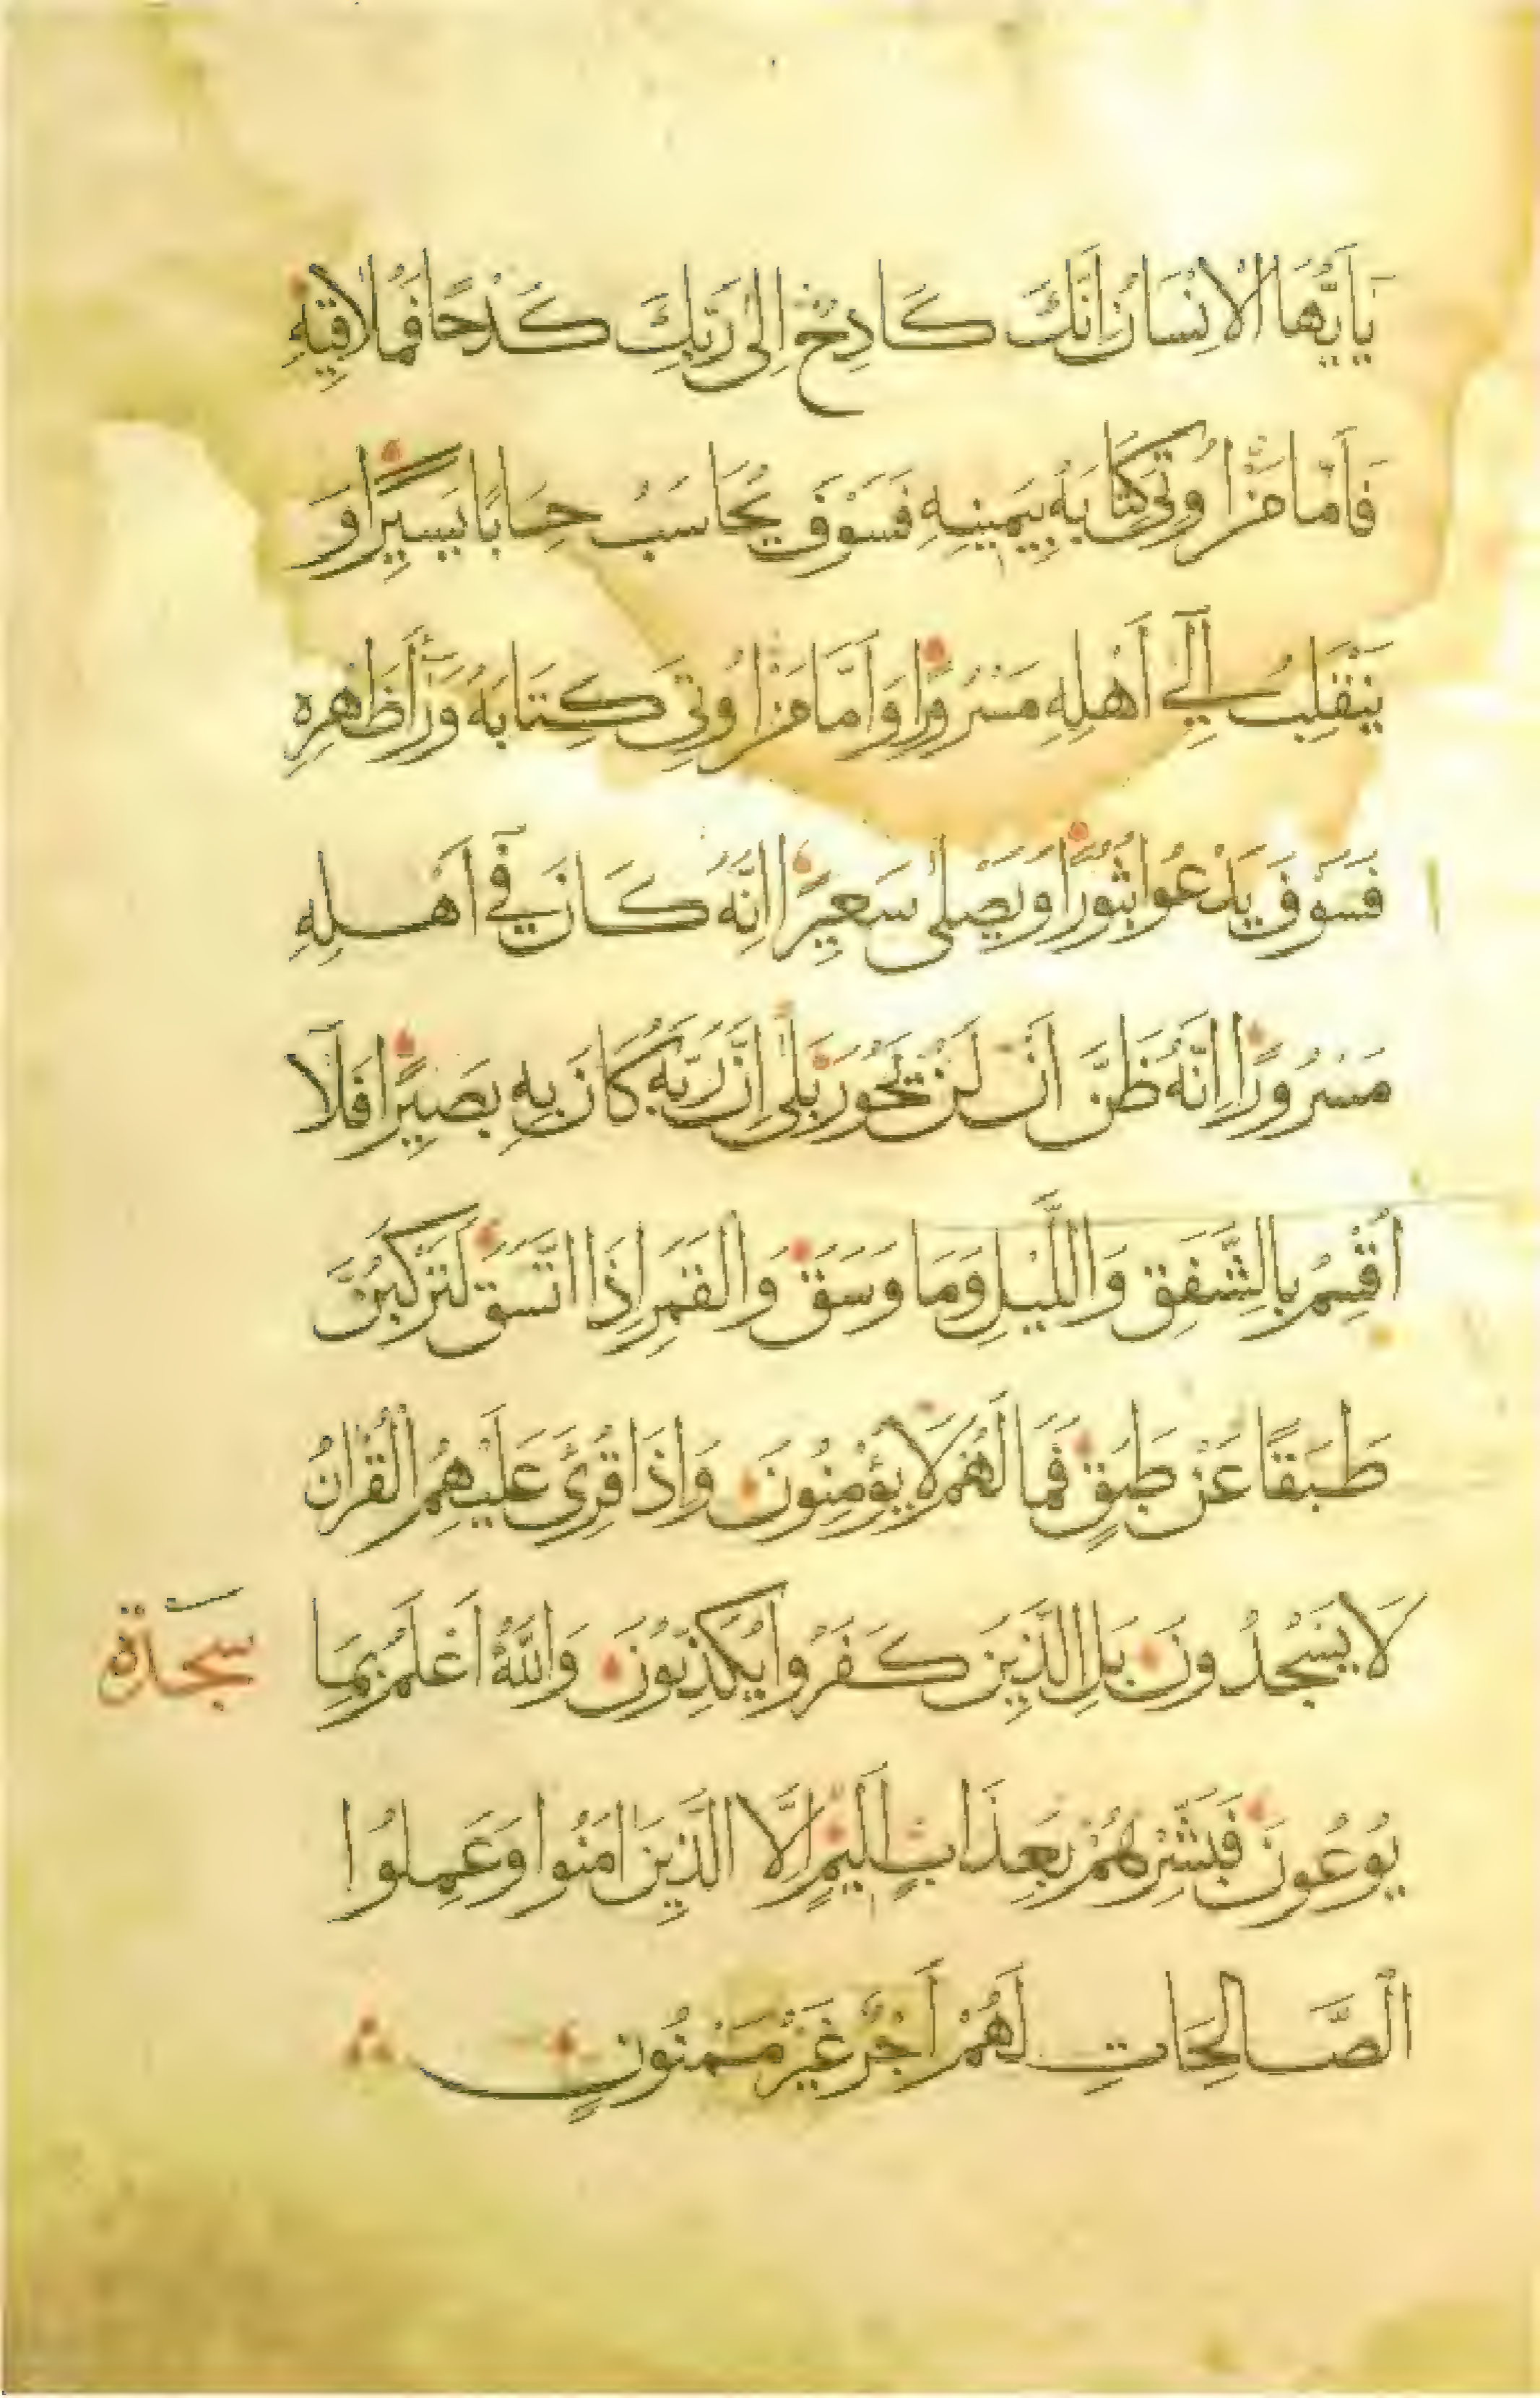 يَا أَيُّهَا الْإِنْسَانُ إِنَّكَ كَادِحٌ إِلَىٰ رَبِّكَ كَدْحًا فَمُلَاقِيهِ
فَأَمَّا مَنْ أُوتِيَ كِتَابَهُ بِيَمِينِهِ فَسَوْفَ يُحَاسَبُ حِسَابًا يَسِيرًا وَ
يَنْقَلِبُ إِلَىٰ أَهْلِهِ مَسْرُورًا وَأَمَّا مَنْ أُوتِيَ كِتَابَهُ وَرَاءَ ظَهْرِهِ
فَسَوْفَ يَدْعُوا ثُبُورًا وَيَصْلَىٰ سَعِيرًا إِنَّهُ كَانَ فِي أَهْلِهِ
مَسْرُورًا إِنَّهُ ظَنَّ أَنْ لَنْ يَحُورَ بَلَىٰ إِنَّ رَبَّهُ كَانَ بِهِ بَصِيرًا فَلَا
أُقْسِمُ بِالشَّفَقِ وَاللَّيْلِ وَمَا وَسَقَ وَالْقَمَرِ إِذَا اتَّسَقَ لَتَرْكَبُنَّ
طَبَقًا عَنْ طَبَقٍ فَمَا لَهُمْ لَا يُؤْمِنُونَ وَإِذَا قُرِئَ عَلَيْهِمُ الْقُرْآنُ
لَا يَسْجُدُونَ بَلِ الَّذِينَ كَفَرُوا يُكَذِّبُونَ وَاللَّهُ أَعْلَمُ بِمَا
سجدة
يُوعُونَ فَبَشِّرْهُمْ بِعَذَابٍ أَلِيمٍ إِلَّا الَّذِينَ آمَنُوا وَعَمِلُوا
الصَّالِحَاتِ لَهُمْ أَجْرٌ غَيْرُ مَمْنُونٍ